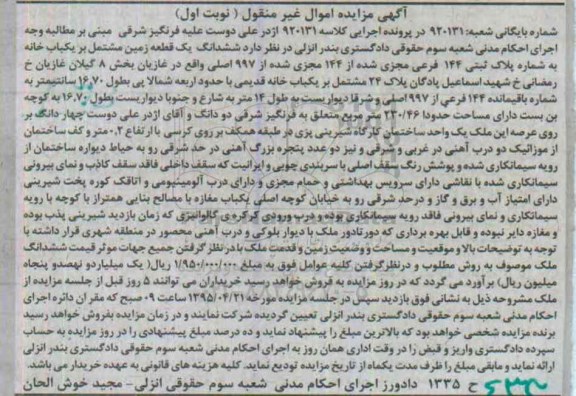 آگهی مزایده اموال غیر منقول ( نوبت اول)
شماره بایگانی شعبه: ۹۲۰۱۳۱ در پرونده اجرایی کلاسه ۹۲۰۱۳۱ اژدر علی دوست علیه فرنگیز شرقی مبنی بر مطالبه وجه
اجرای احکام مدنی شعبه سوم حقوقی دادگستری بندر انزلی در نظر دارد ششدانگ یک قطعه زمین مشتمل بر یکباب خانه
به شماره پلاک ثبتی ۱۴۴ فرعی مجزی شده از ۱۴۴ مجزی شده از ۹۹۷ اصلی واقع در غازیان بخش ۸ گیلان غازیان خ
رمضانی خ شهید اسماعیل پادگان پلاک ۲۴ مشتمل بر یکباب خانه قدیمی با حدود اربعه شمالا پی بطول ۱۶،۷۰ سانتیمتر به
شماره باقیمانده ۱۴۴ فرعی از ۹۹۷ اصلی و شرقا دیواریست به طول ۱۴ متر به شارع و جنوبا دیواریست بطول ۱۶،۷۰ به کوچه
بن بست دارای مساحت حدودا ۲۳۰/۴۶ متر مربع متعلق به فرنگیز شرقی دو دانگ و آقای اژدر علی دوست چهار دانگ بر
روی عرصه این ملک یک واحد ساختمان کارگاه شیرینی پزی در طبقه همکف بر روی کرسی با ارتفاع ۰،۲ متر و کف ساختمان
از موزائیک دو درب آهنی در غربی و شرقی و نیز دو عدد پنجره بزرگ آهنی در حد شرقی رو به حیاط دیواره ساختمان از
رویه سیمانکاری شده و پوشش رنگ سقف اصلی با سربندی چوبی و ایرانیت که سقف داخلی فاقد سقف کاذب و نمای بیرونی
سیمانکاری شده با نقاشی دارای سرویس بهداشتی و حمام مجزی و دارای درب آلومینیومی و اتاقک کوره پخت شیرینی
دارای امتیاز آب و برق و گاز و در حد شرقی رو به خیابان کوچه اصلی یکباب مغازه با مصالح بنایی همتراز با کوچه با رویه
سیمانکاری و نمای بیرونی فاقد رویه سیمانکاری بوده و درب ورودی کرکره ی گالوانیزی که زمان بازدید شیرینی پذب بوده
و مغازه دایر نبوده و قابل بهره برداری که دور تادور ملک با دیوار بلوکی و درب آهنی محصور در منطقه شهری قرار داشته با
توجه به توضیحات بالا و موقعیت و مساحت و وضعیت زمین و قدمت ملک با در نظر گرفتن جمیع جهات موثر قیمت ششدانگ
ملک موصوف به روش مطلوب و در نظر گرفتن کلیه عوامل فوق به مبلغ ۱/۹۵۰/۰۰۰/۰۰۰ ریال( یک میلیارد و نهصد و پنجاه
میلیون ریال) برآورد می گردد که در روز مزایده به فروش خواهد رسید خریداران می توانند ۵ روز قبل از جلسه مزایده از
ملک مشروحه ذیل به نشانی فوق بازدید سپس در جلسه مزایده مورخه ۱۳۹۵/۰۴/۲۱ ساعت ۰۹ صبح که مقر آن دائره اجرای
احکام مدنی شعبه سوم حقوقی دادگستری بندر انزلی تعیین گردیده شرکت نمایند و در زمان مزایده بفروش خواهد رسید
برنده مزایده شخصی خواهد بود که بالاترین مبلغ را پیشنهاد نماید و ده درصد مبلغ پیشنهادی را در روز مزایده به حساب
سپرده دادگستری واریز و قبض را در وقت اداری همان روز به اجرای احکام مدنی شعبه سوم حقوقی دادگستری بندر انزلی
ارائه نماید و مابقی مبلغ را ظرف مدت یکماه از تاریخ مزایده تودیع نماید. کلیه هزینه های قانونی به عهده خریدار می باشد.
ح ۱۳۳۵ دادورز اجرای احکام مدنی شعبه سوم حقوقی انزلی - مجید خوش الحان